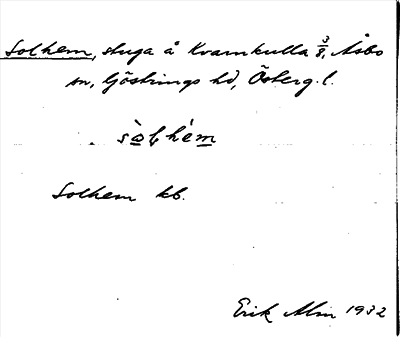 Solhem, stuga å Kvarnkulla 3/8, Åsbo
sn, Göstrings hd, Österg. l.
sò̱lhé̱m
Solhem kb.
Erik Alm 1932